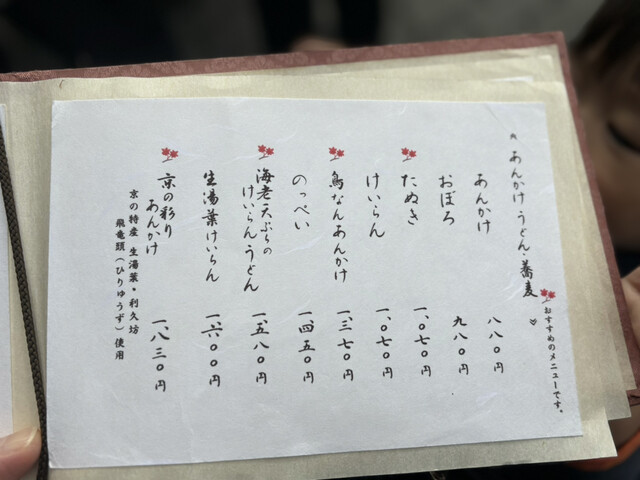 あんかけうどん・蕎麦
おすすめのメニューです。
あんかけ 八八〇円
おぼろ 九八〇円
たぬき 一、〇七〇円
けいらん 一、〇七〇円
鳥なんあんかけ 一、三七〇円
のっぺい 一、四五〇円
海老天ぷらの
けいらんうどん 一、五八〇円
生湯葉けいらん 一、六〇〇円
京の彩り
あんかけ 一、八三〇円
京の特産 生湯葉・利久坊
飛竜頭（ひりゅうず）使用